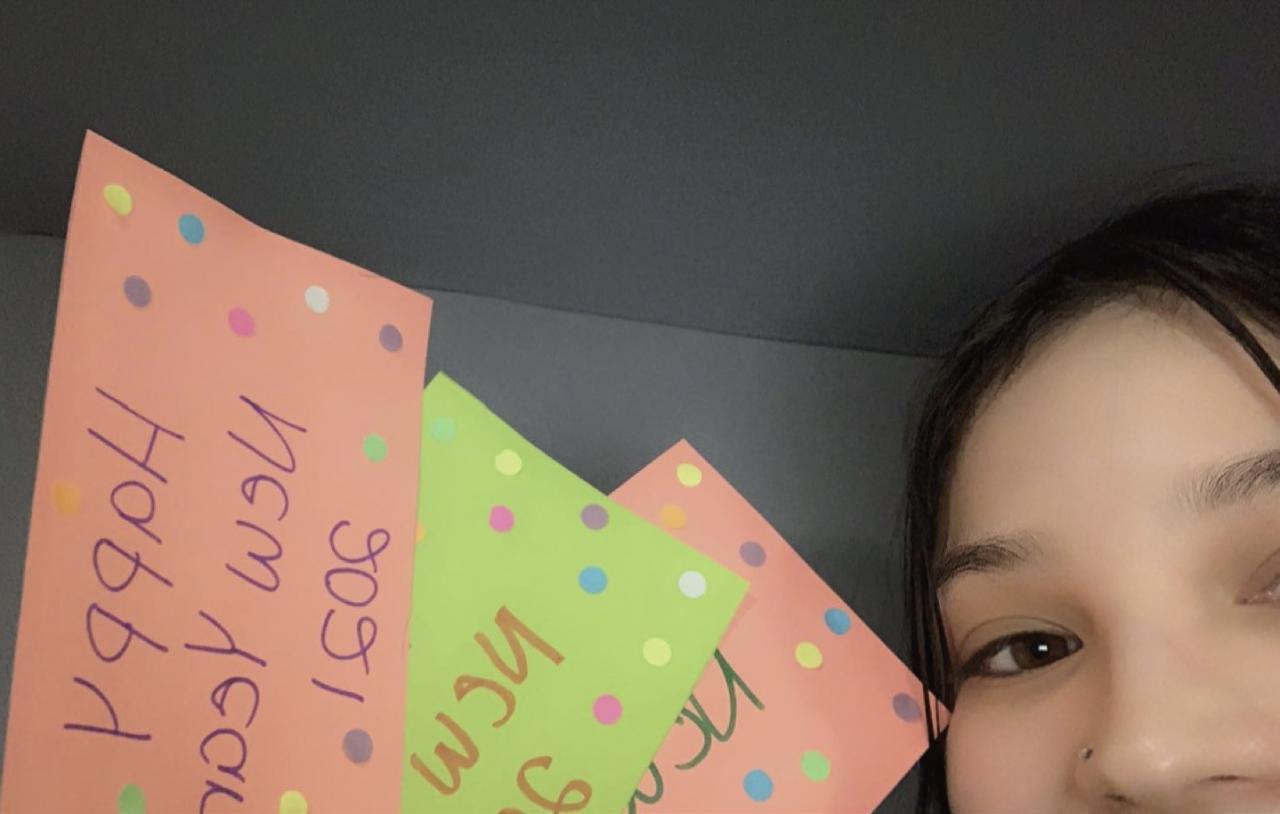 Happy
New Year
2021
New